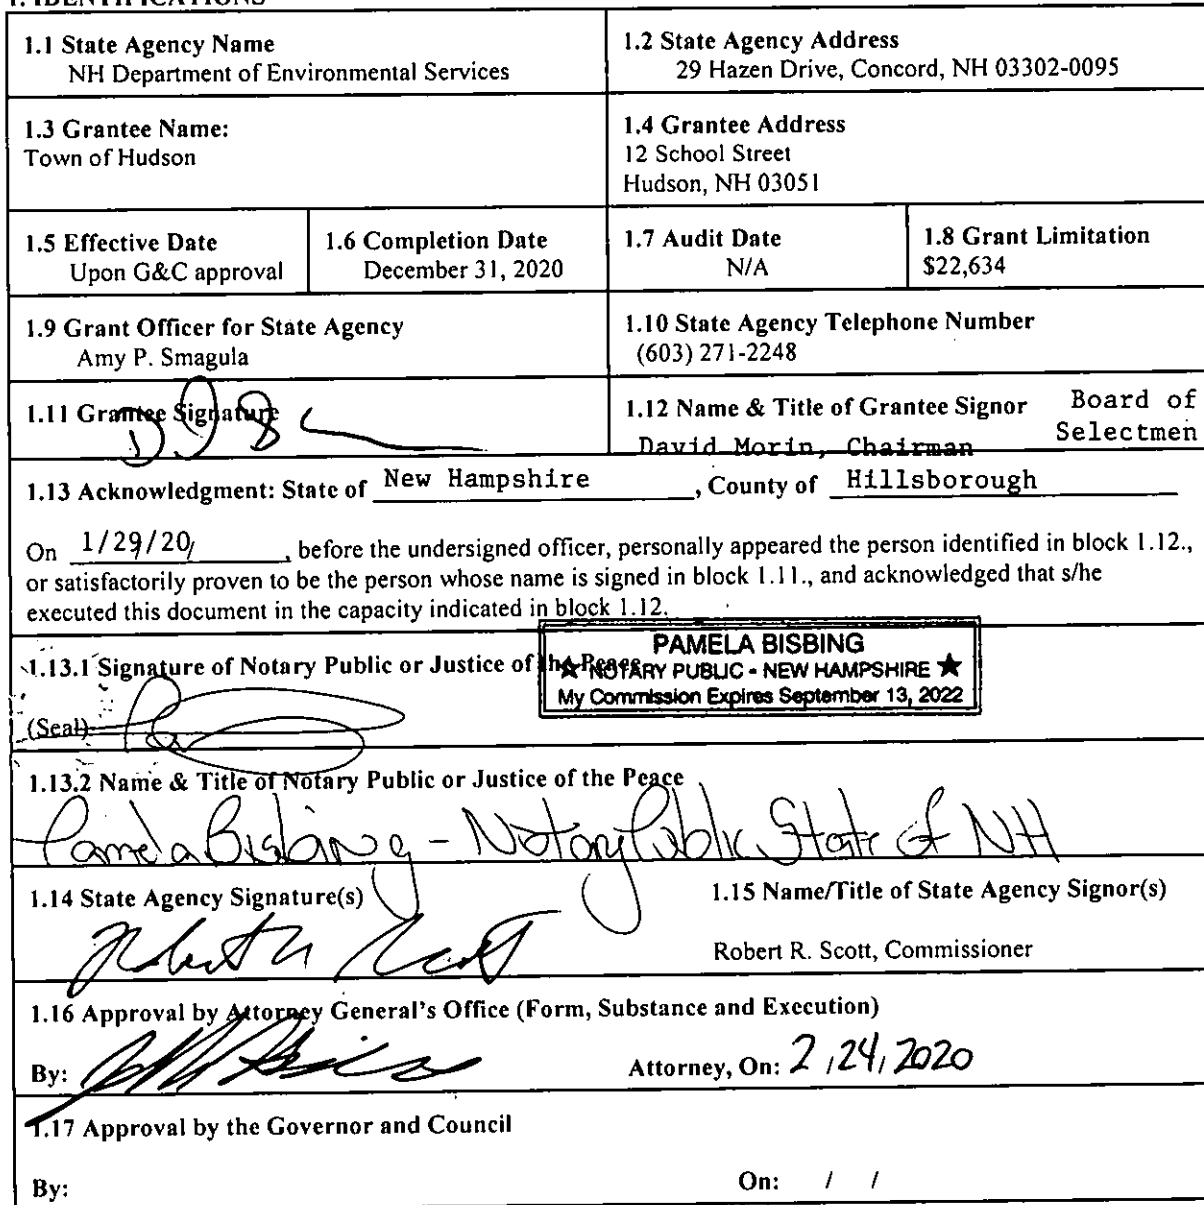 1. IDENTIFICATIONS
1.1 State Agency Name
NH Department of Environmental Services
1.2 State Agency Address
29 Hazen Drive, Concord, NH 03302-0095
1.3 Grantee Name:
Town of Hudson
1.4 Grantee Address
12 School Street
Hudson, NH 03051
1.5 Effective Date
Upon G&C approval
1.6 Completion Date
December 31, 2020
1.7 Audit Date
N/A
1.8 Grant Limitation
$22,634
1.9 Grant Officer for State Agency
Amy P. Smagula
1.10 State Agency Telephone Number
(603) 271-2248
1.11 Grantee Signature
1.12 Name & Title of Grantee Signor Board of
David Morin, Chairman Selectmen
1.13 Acknowledgment: State of New Hampshire, County of Hillsborough
On 1/29/20, before the undersigned officer, personally appeared the person identified in block 1.12.,
or satisfactorily proven to be the person whose name is signed in block 1.11., and acknowledged that s/he
executed this document in the capacity indicated in block 1.12.
PAMELA BISBING
1.13.1 Signature of Notary Public or Justice of the Peace
★ NOTARY PUBLIC - NEW HAMPSHIRE ★
My Commission Expires September 13, 2022
(Seal)
1.13.2 Name & Title of Notary Public or Justice of the Peace
Pamela Bisbing - Notary Public, State of NH
1.14 State Agency Signature(s)
1.15 Name/Title of State Agency Signor(s)
Robert R. Scott, Commissioner
1.16 Approval by Attorney General's Office (Form, Substance and Execution)
By: Attorney, On: 2/24/2020
1.17 Approval by the Governor and Council
By: On: / /